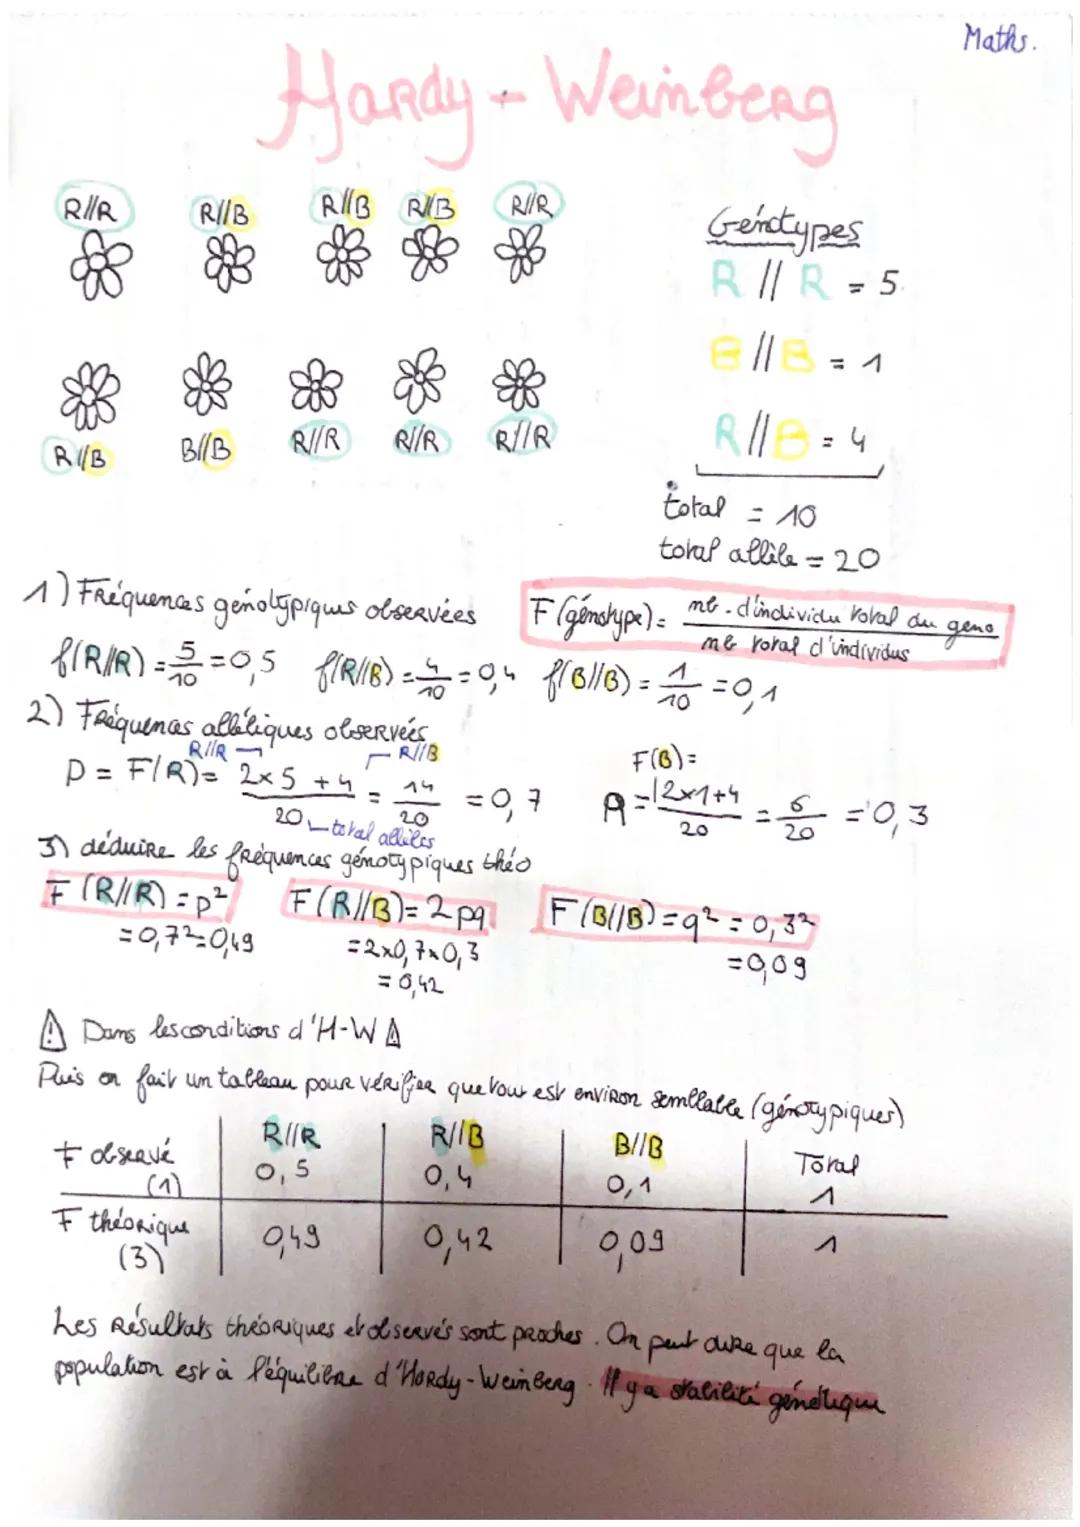 Maths.
Hardy-Weinberg
R//R R//B R//B R//B R//R
R//B B//B R//R R//R R//R
Génotypes
R // R = 5.
B // B = 1
R // B = 4
total = 10
total allèle = 20
1) Fréquences génotypiques observées
F (génotype) = nb. d'individu total du geno / nb total d'individus
f(R//R) = 5/10 = 0,5 f(R//B) = 4/10 = 0,4 f(B//B) = 1/10 = 0,1
2) Fréquences alléliques observées
R//R R//B
p = F(R) = 2x5 + 4 / 20 = 14/20 = 0,7
total allèles
F(B) =
q = 2x1+4 / 20 = 6/20 = 0,3
3) déduire les fréquences génotypiques théo
F (R//R) = p² F (R//B) = 2pq F (B//B) = q² = 0,3²
= 0,7² = 0,49 = 2x0,7x0,3 = 0,09
= 0,42
⚠ Dans les conditions d'H-W ⚠
Puis on fait un tableau pour vérifier que tout est environ semblable (génotypiques)
R//R R//B B//B Total
F observé (1) 0,5 0,4 0,1 1
F théorique (3) 0,49 0,42 0,09 1
Les résultats théoriques et observés sont proches. On peut dire que la
population est à l'équilibre d'Hardy-Weinberg. Il y a stabilité génétique